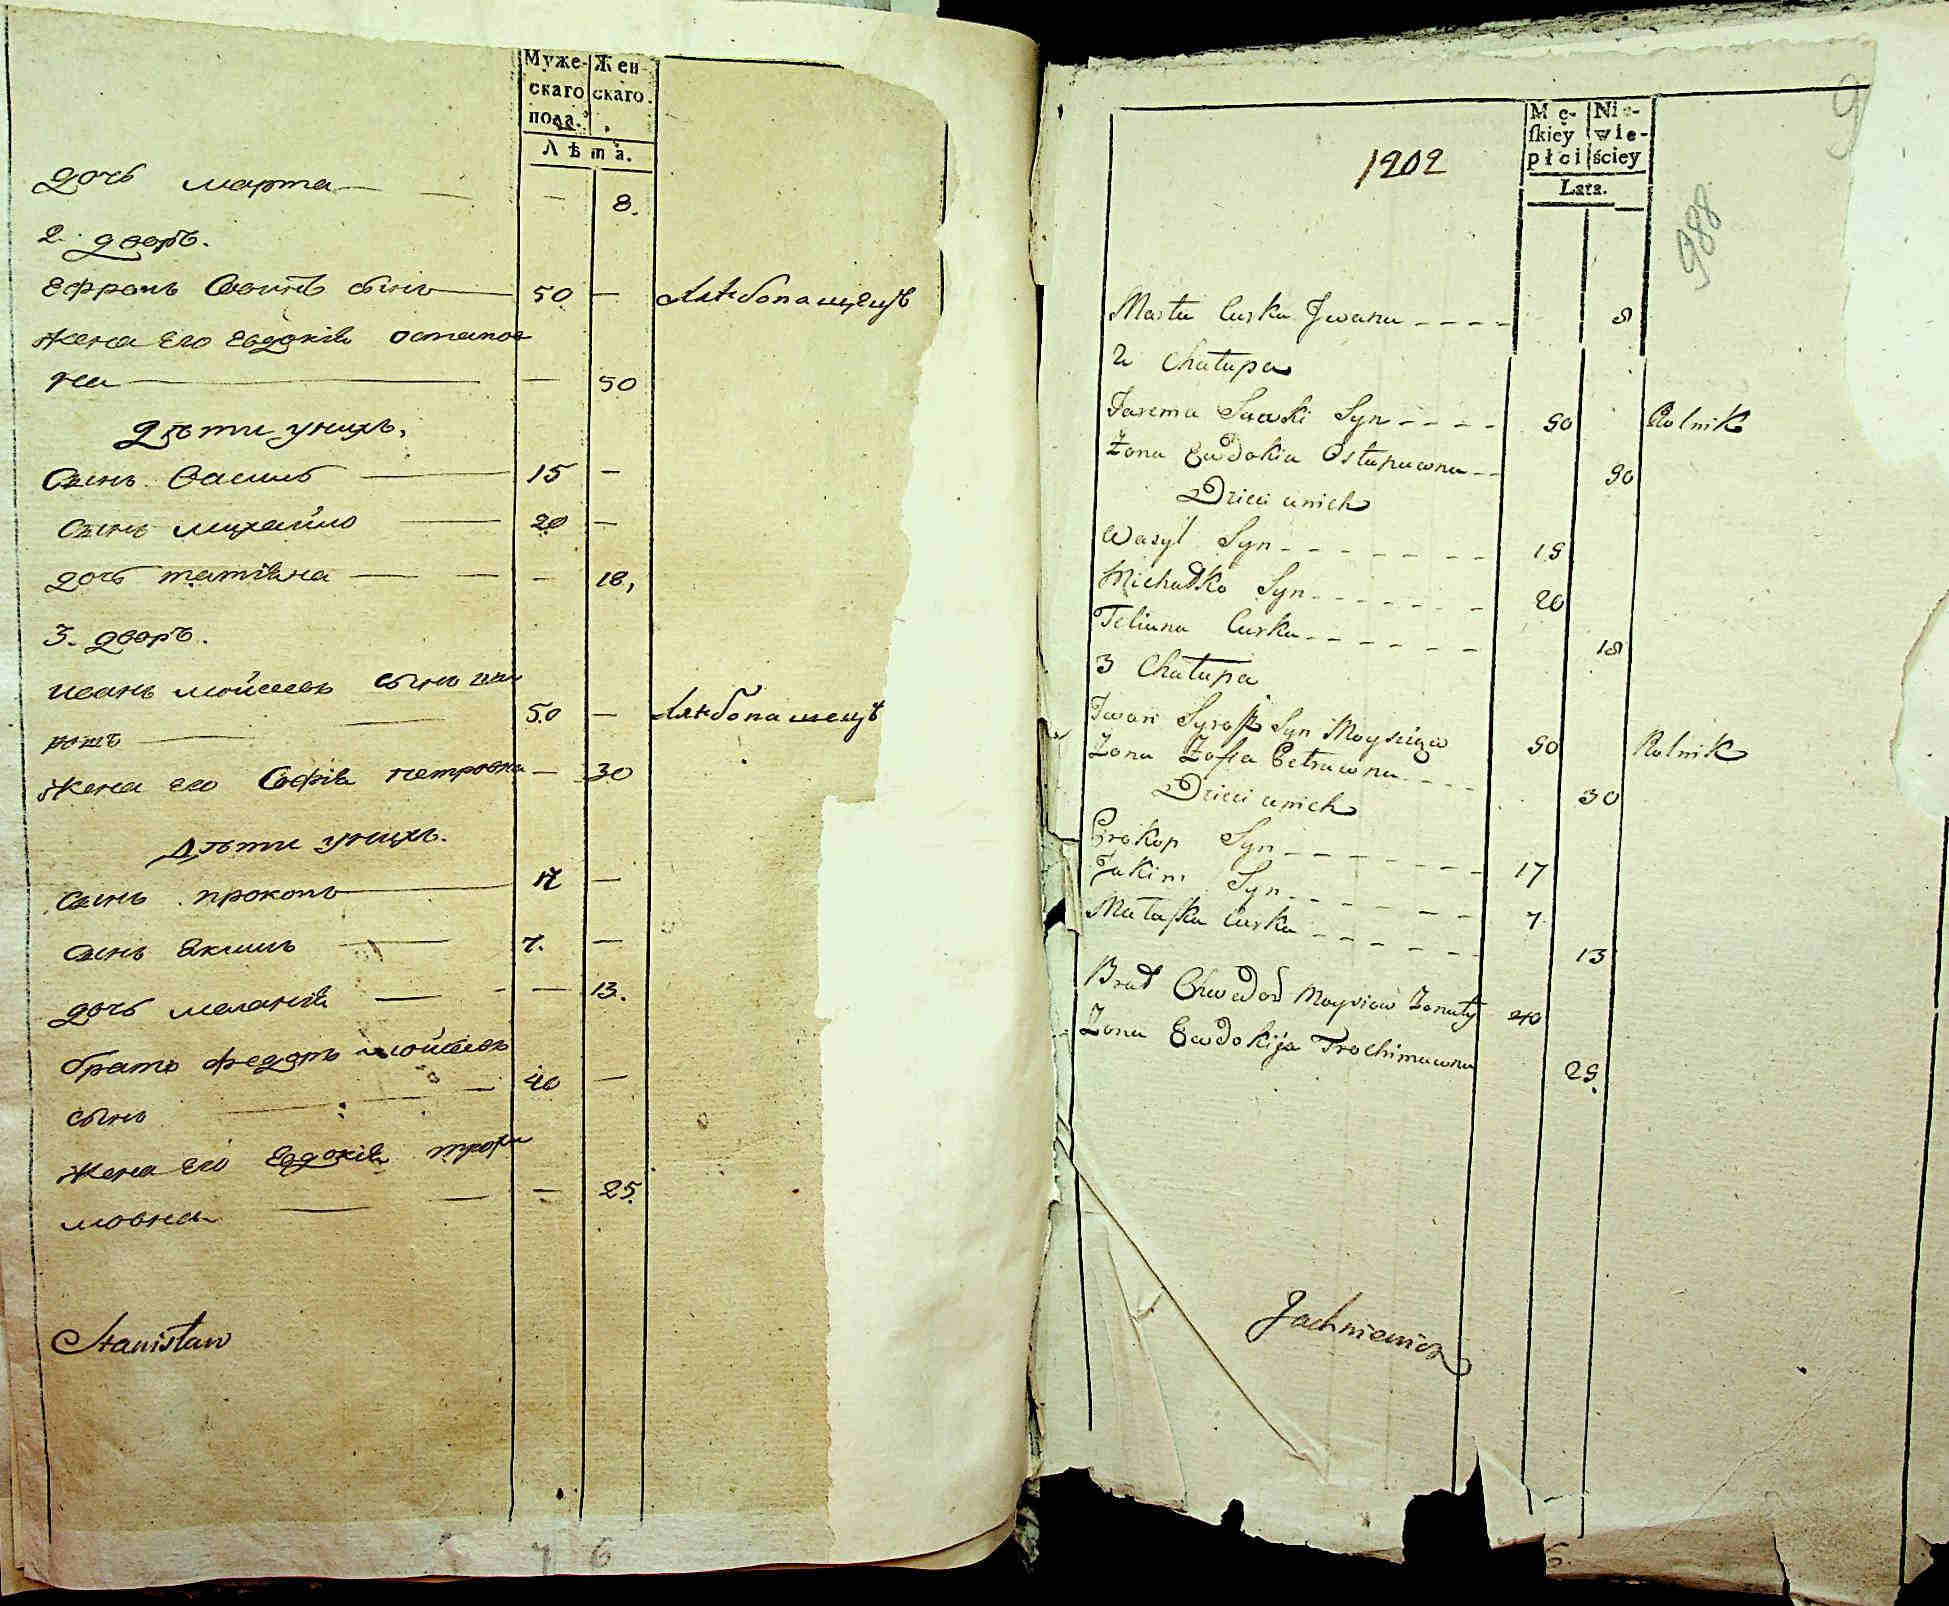 Муже-
скаго
пола.
Жен
скаго.
Лѣта.
дочь марта 8.
2. дворъ.
сынъ 50 Хлѣбопашецъ
жена его евдокія остапов
на 50
дѣти унихъ.
сынъ василь 15
сынъ михайло 20
дочь татіяна 18,
3. дворъ.
иванъ мойсеевъ сынъ
50 Хлѣбопашецъ
жена его Софія петровна 30
дѣти унихъ.
сынъ прокопъ 17
сынъ екимъ 7.
дочь меланія 13.
братъ федоръ мойсеевъ
сынъ 40
жена его Евдокія трохи
мовна 25.
Stanisław
7 6
1202
Mę-
ſkiey
płci
Nie-
wie-
ściey
Lata.
9
988
Marta Curka Jwana 8
2 Chałupa
Jarema Sawki Syn 50 Rolnik
Żona Ewdokia Ostapawna 50
Dzieci unich
Wasyl Syn 15
Michałko Syn 20
Teliana Curka 18
3 Chałupa
Jwan Syn Moysieia 50 Rolnik
Żona Zofia Petrawna 30
Dzieci unich
Prokop Syn 17
Jakim Syn 7
Małaſka Curka 13
Brat Chwedor Moysiow Żonaty 40
Żona Ewdokija Trochimawna 25.
Jachniewicz